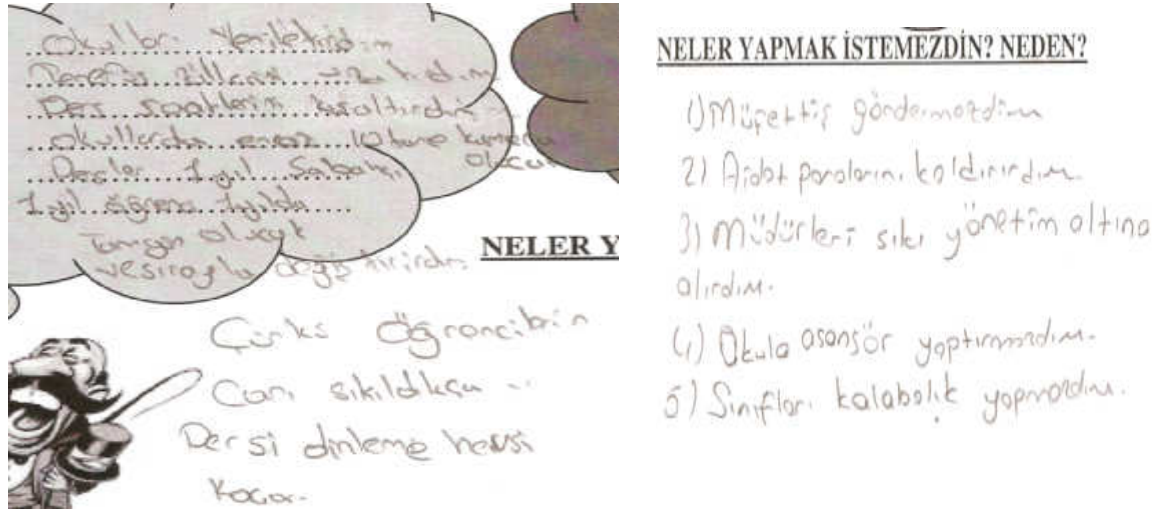 Okulları Yeniletirdim
Teneffüs Zillerini
Ders saatlerin kısaltırdım
okullarda enaz 10 tane kamera
olucak
Dersler 1 yıl Sabahçı
1 yıl öğrenci 1 yılda
olucak
vesırayla değiştirirdim
NELER Y
Çünkü Öğrencibrin
Canı sıkıldıkça ..
Dersi dinleme hevsi
Kaçar.
NELER YAPMAK İSTEMEZDİN? NEDEN?
1) Müfettiş göndermezdim
2) Aidat paralarını kaldırırdım.
3) Müdürleri sıkı yönetim altına
alırdım.
4) Okula asansör yaptırmazdım.
5) Sınıfları kalabalık yapmazdım.